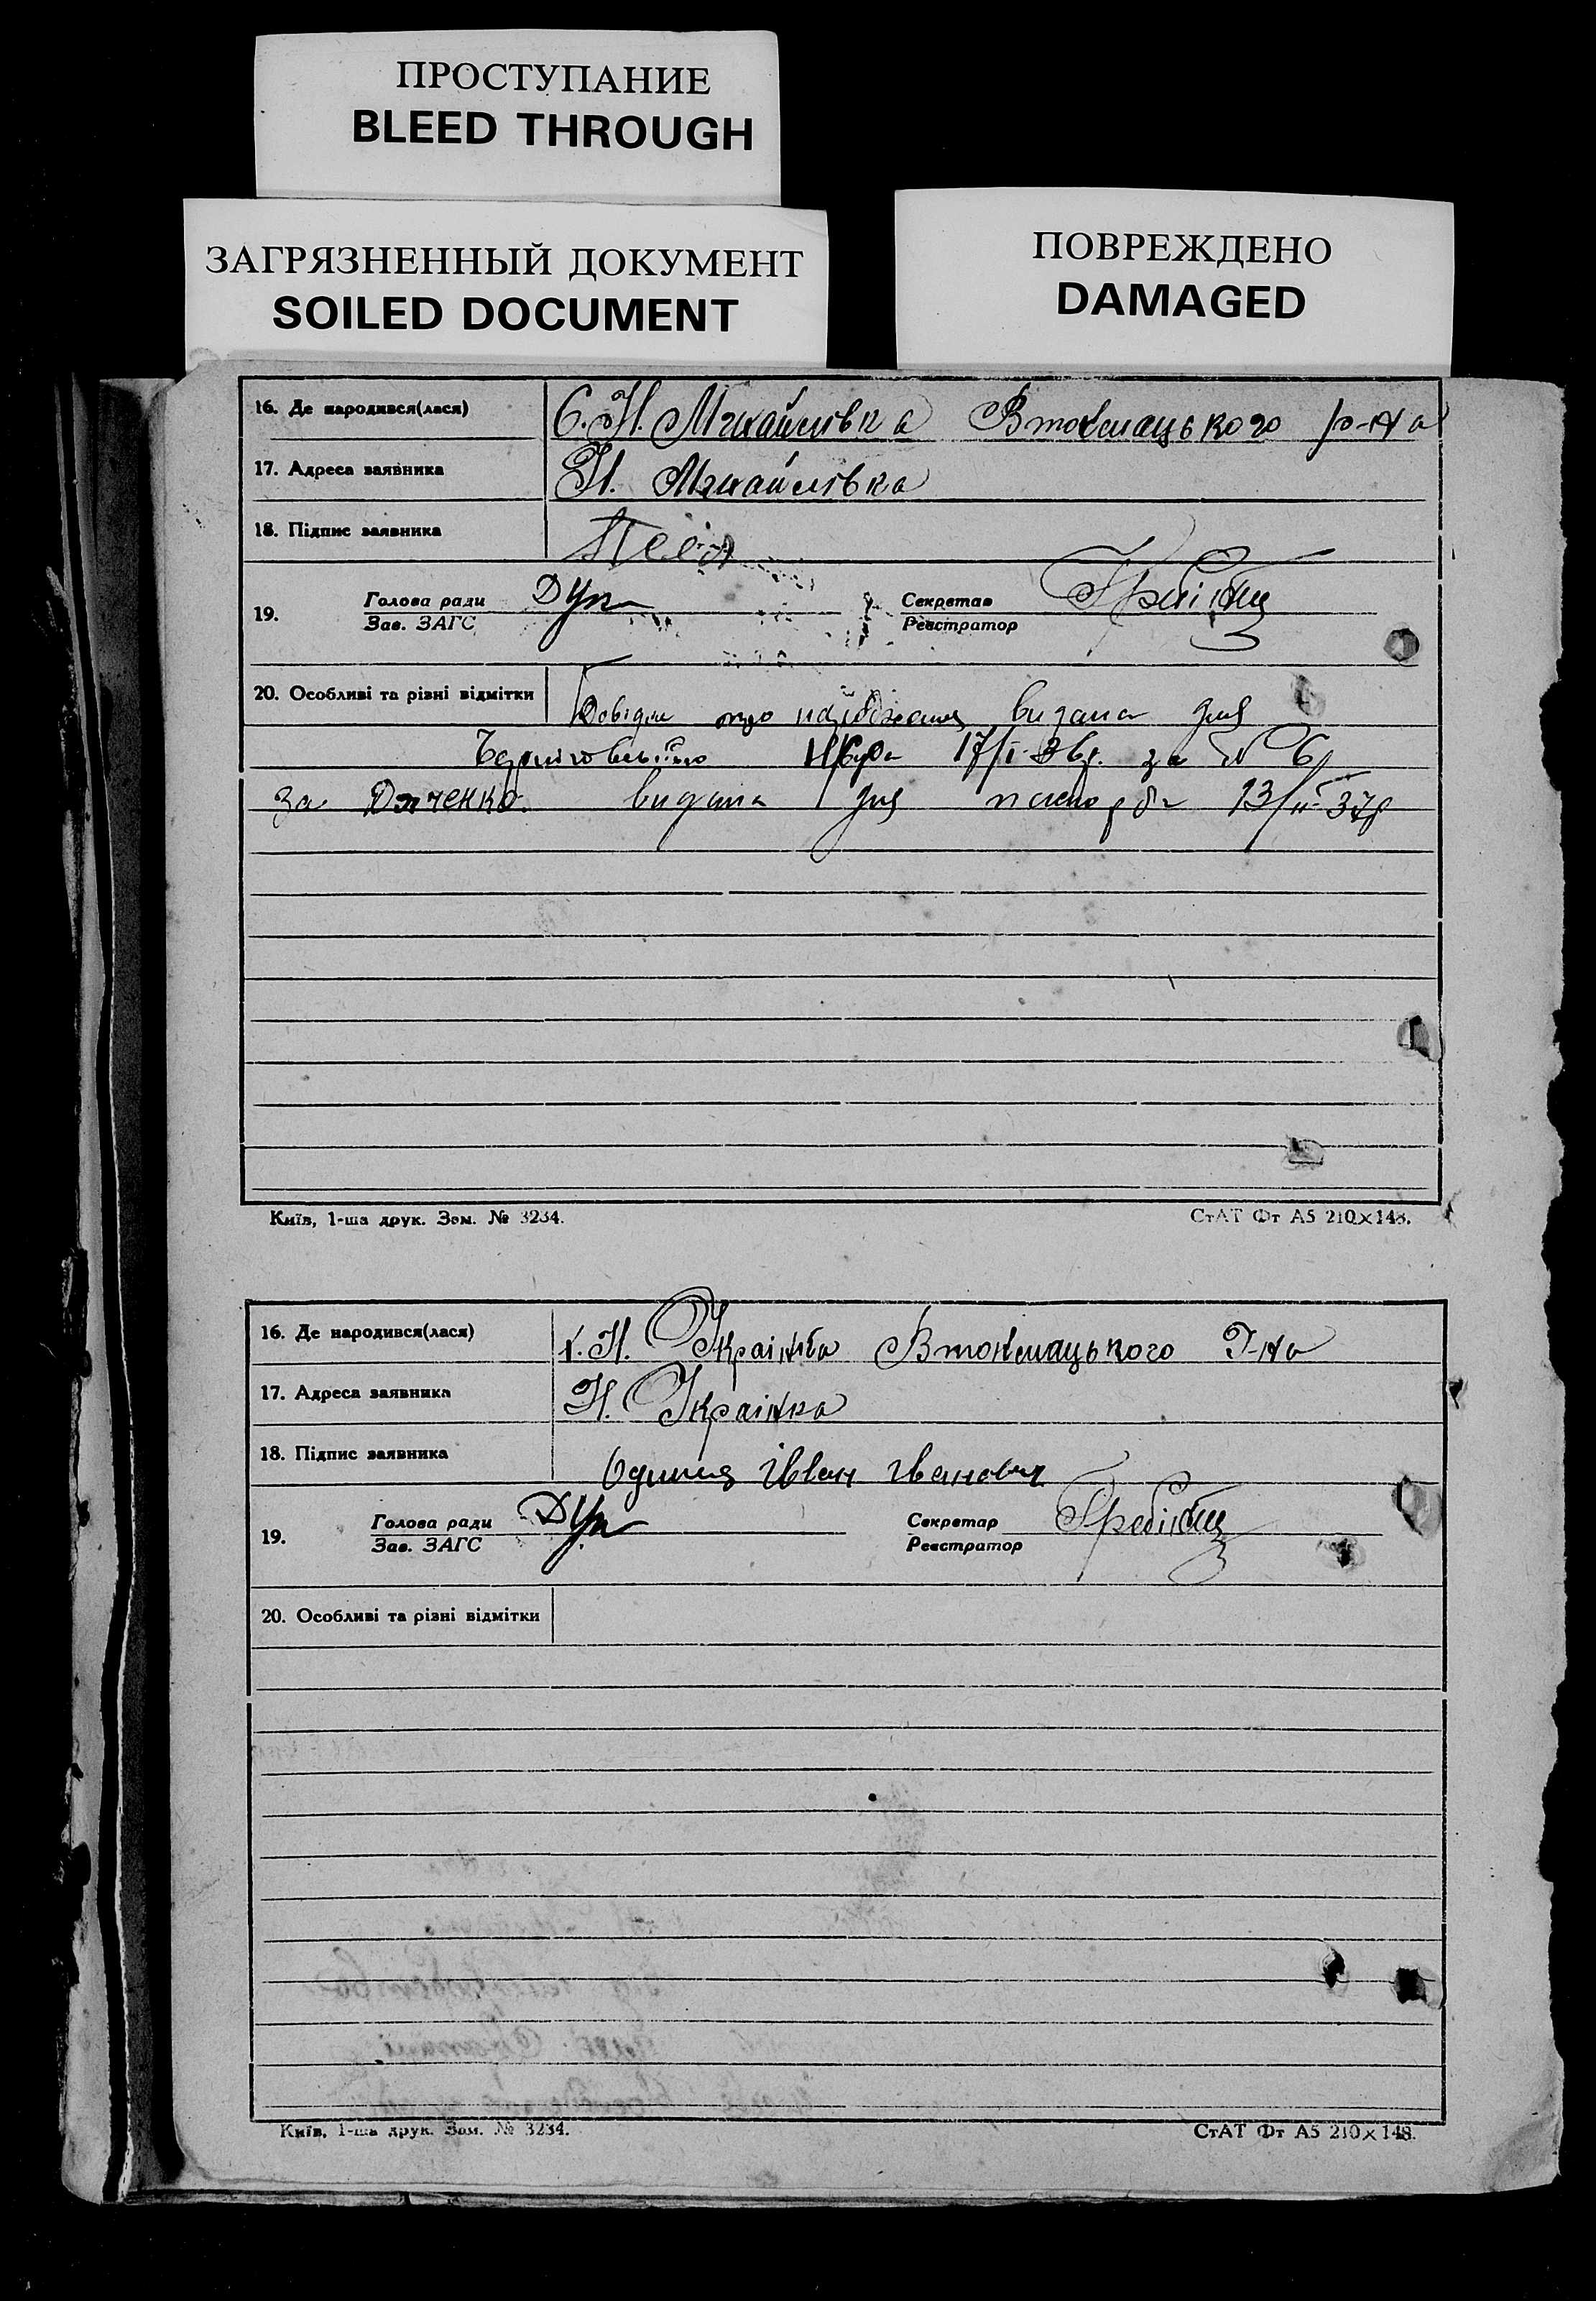 ПРОСТУПАНИЕ
BLEED THROUGH
ЗАГРЯЗНЕННЫЙ ДОКУМЕНТ
SOILED DOCUMENT
ПОВРЕЖДЕНО
DAMAGED
16. Де народився(лася) С. Н. Михайлівка Втокмацького р-на
17. Адреса заявника Н. Михайлівка
18. Підпис заявника
19. Голова ради Секретар
Зав. ЗАГС Реєстратор
20. Особливі та різні відмітки Довідка про видана для
17/І-36р. за № 6
за Дяченко видана для паспорта 13/ІІ-37р
Київ, 1-ша друк. Зам. № 3234. СтАТ Фт А5 210×148.
16. Де народився(лася) Н. Українка Втокмацького р-на
17. Адреса заявника Н. Українка
18. Підпис заявника Іван Іванович
19. Голова ради Секретар
Зав. ЗАГС Реєстратор
20. Особливі та різні відмітки
Київ, 1-ша друк. Зам. № 3234. СтАТ Фт А5 210×148.